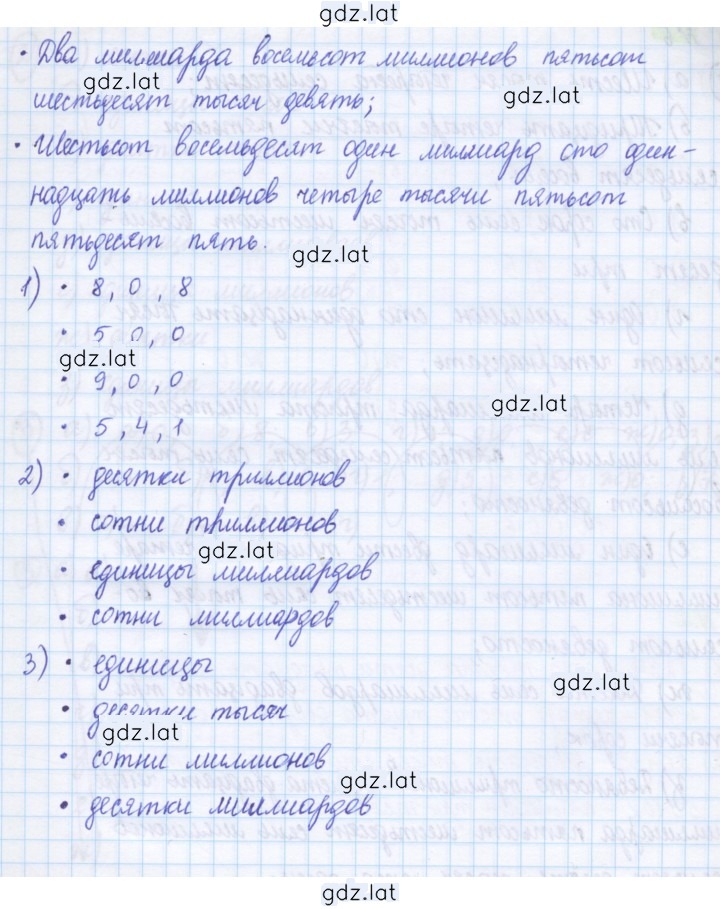 gdz.lat
• Два миллиарда восемьсот миллионов пятьсот
gdz.lat
шестьдесят тысяч девять;
gdz.lat
• Шестьсот восемьдесят один миллиард сто один-
надцать миллионов четыре тысячи пятьсот
пятьдесят пять.
gdz.lat
1) • 8, 0, 8
• 5, 0, 0
gdz.lat
• 9, 0, 0
gdz.lat
• 5, 4, 1
2) • десятки триллионов
• сотни триллионов
gdz.lat
• единицы миллиардов
• сотни миллиардов
3) • единицы
gdz.lat
• десятки тысяч
gdz.lat
• сотни миллионов
gdz.lat
• десятки миллиардов
gdz.lat